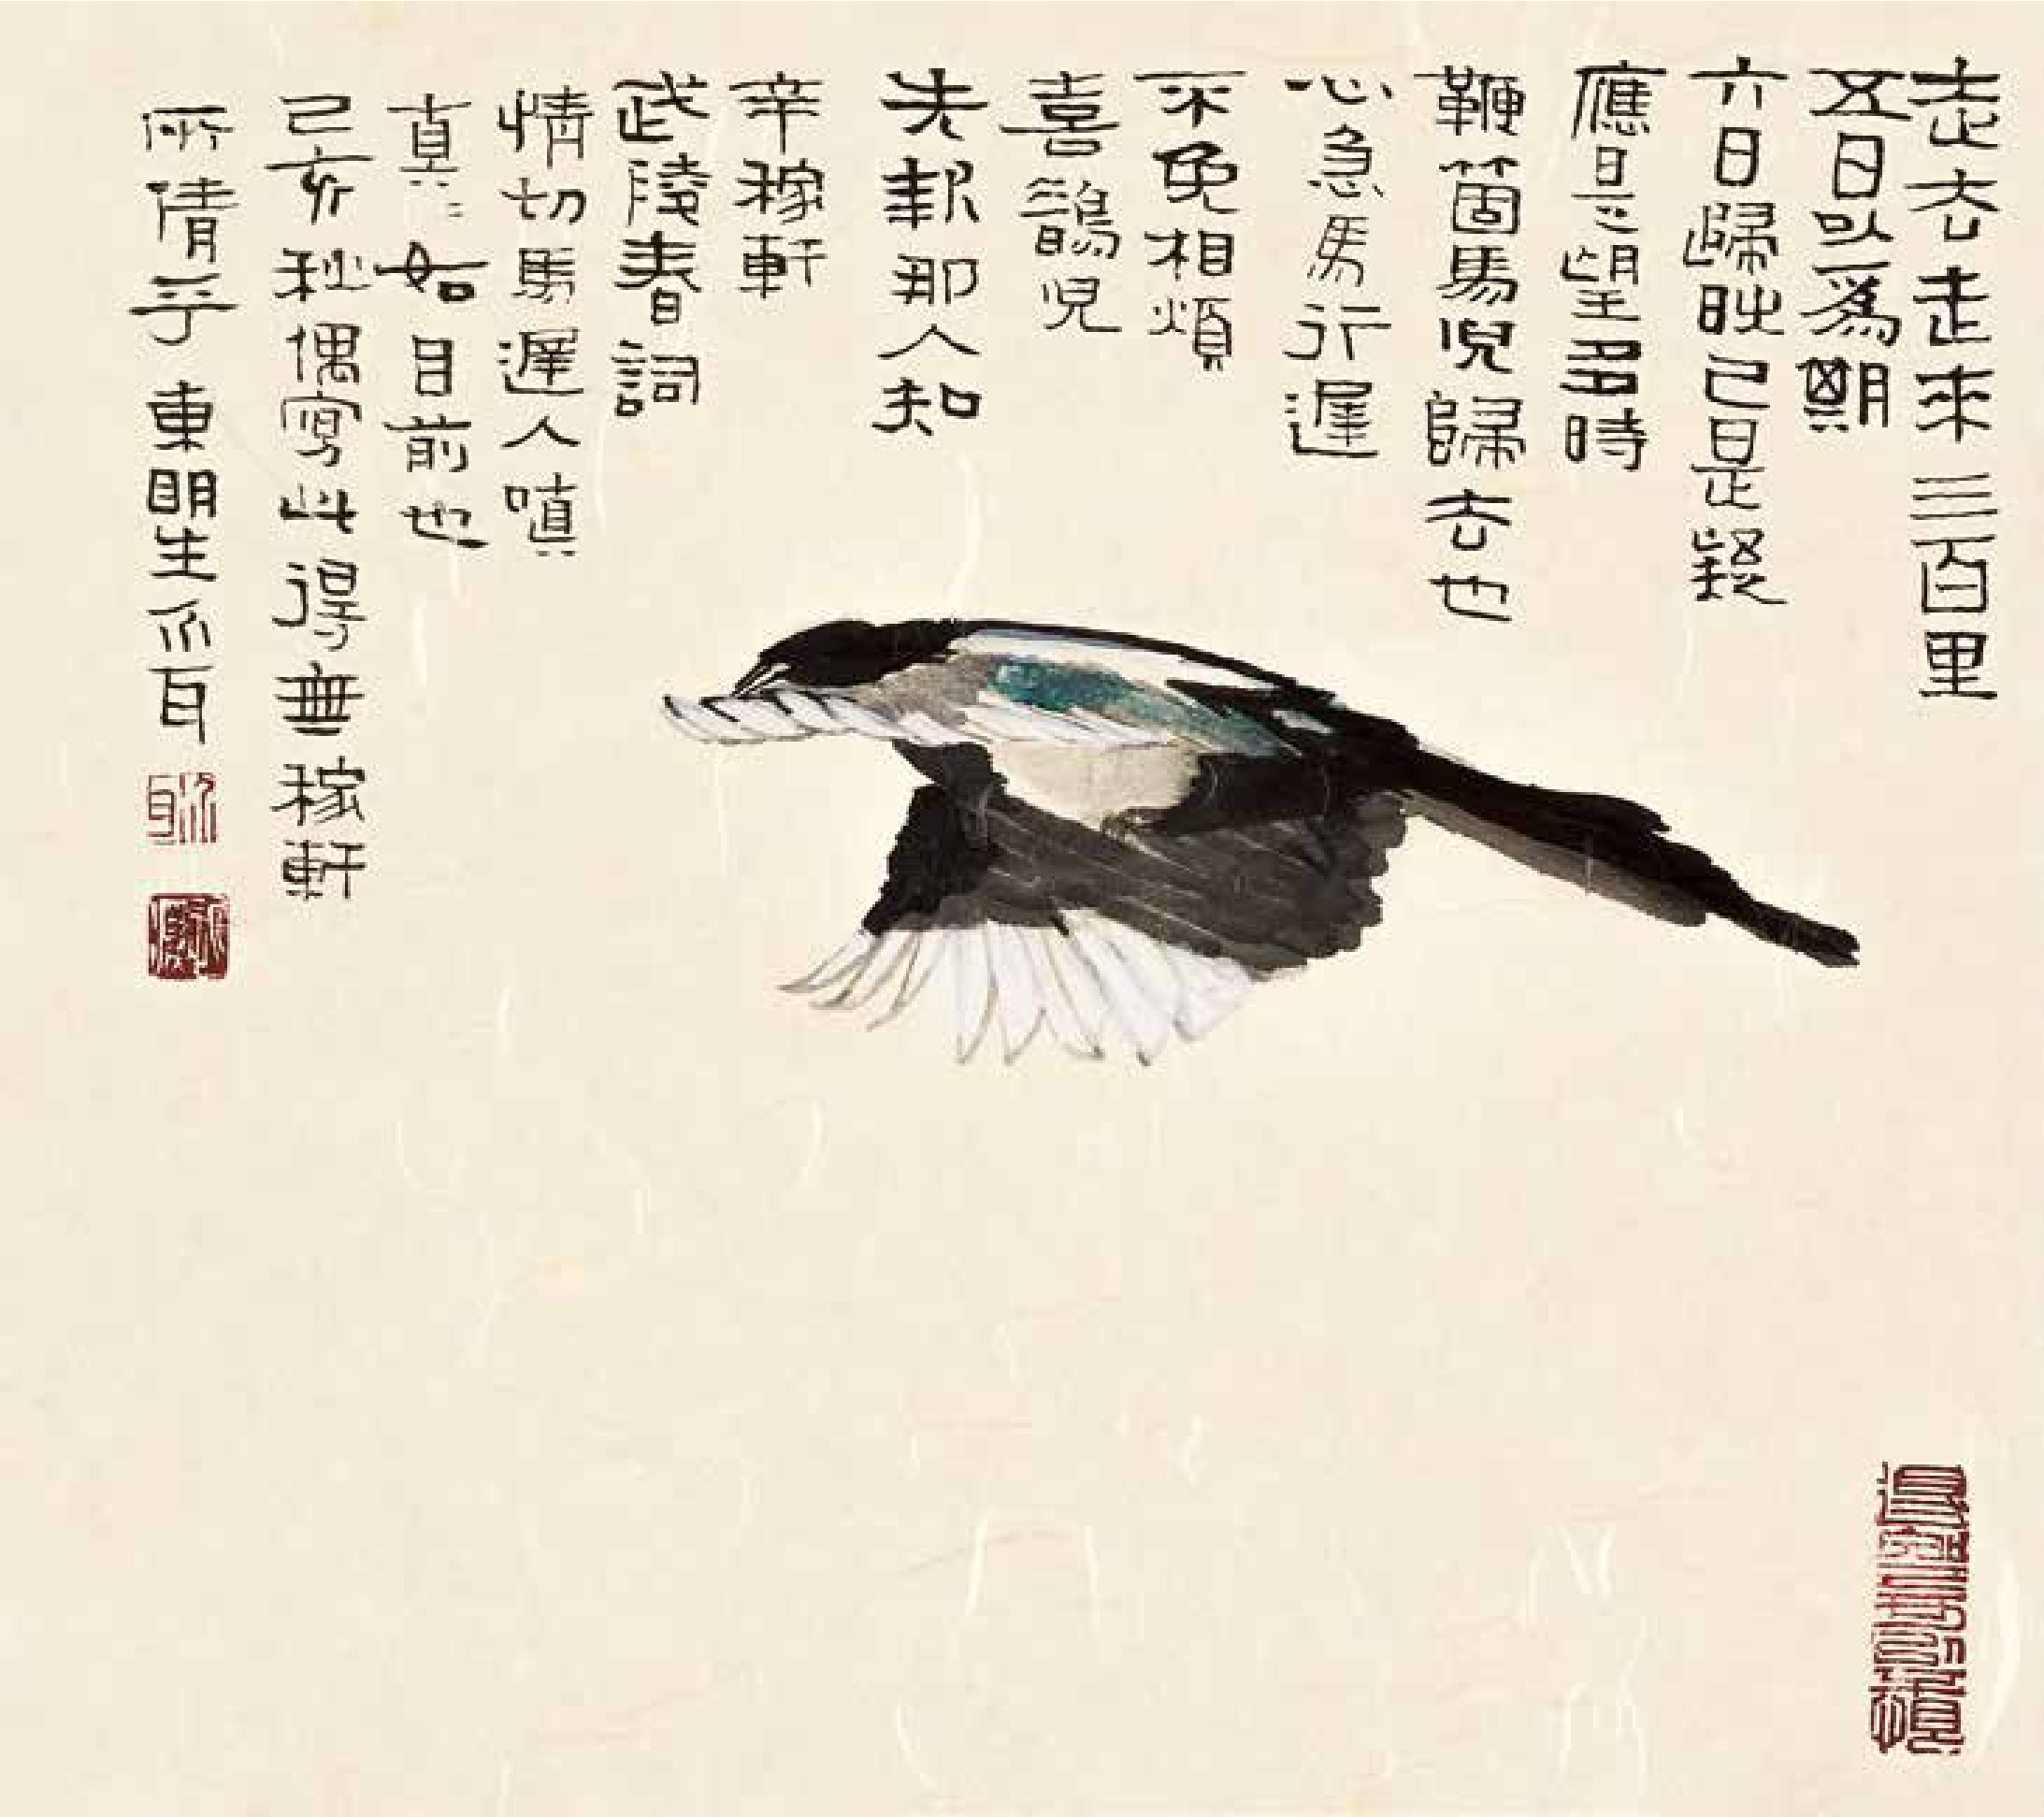 走去走來三百里
五日以爲期
六日歸時已是疑
應是望多時
鞭箇馬兒歸去也
心急馬行遲
不免相煩
喜鵲兒
先報那人知
辛稼軒
武陵春詞
情切馬遲人嗔
真〻如目前也
己亥秋偶寫此得無稼軒
所倩乎東朙生